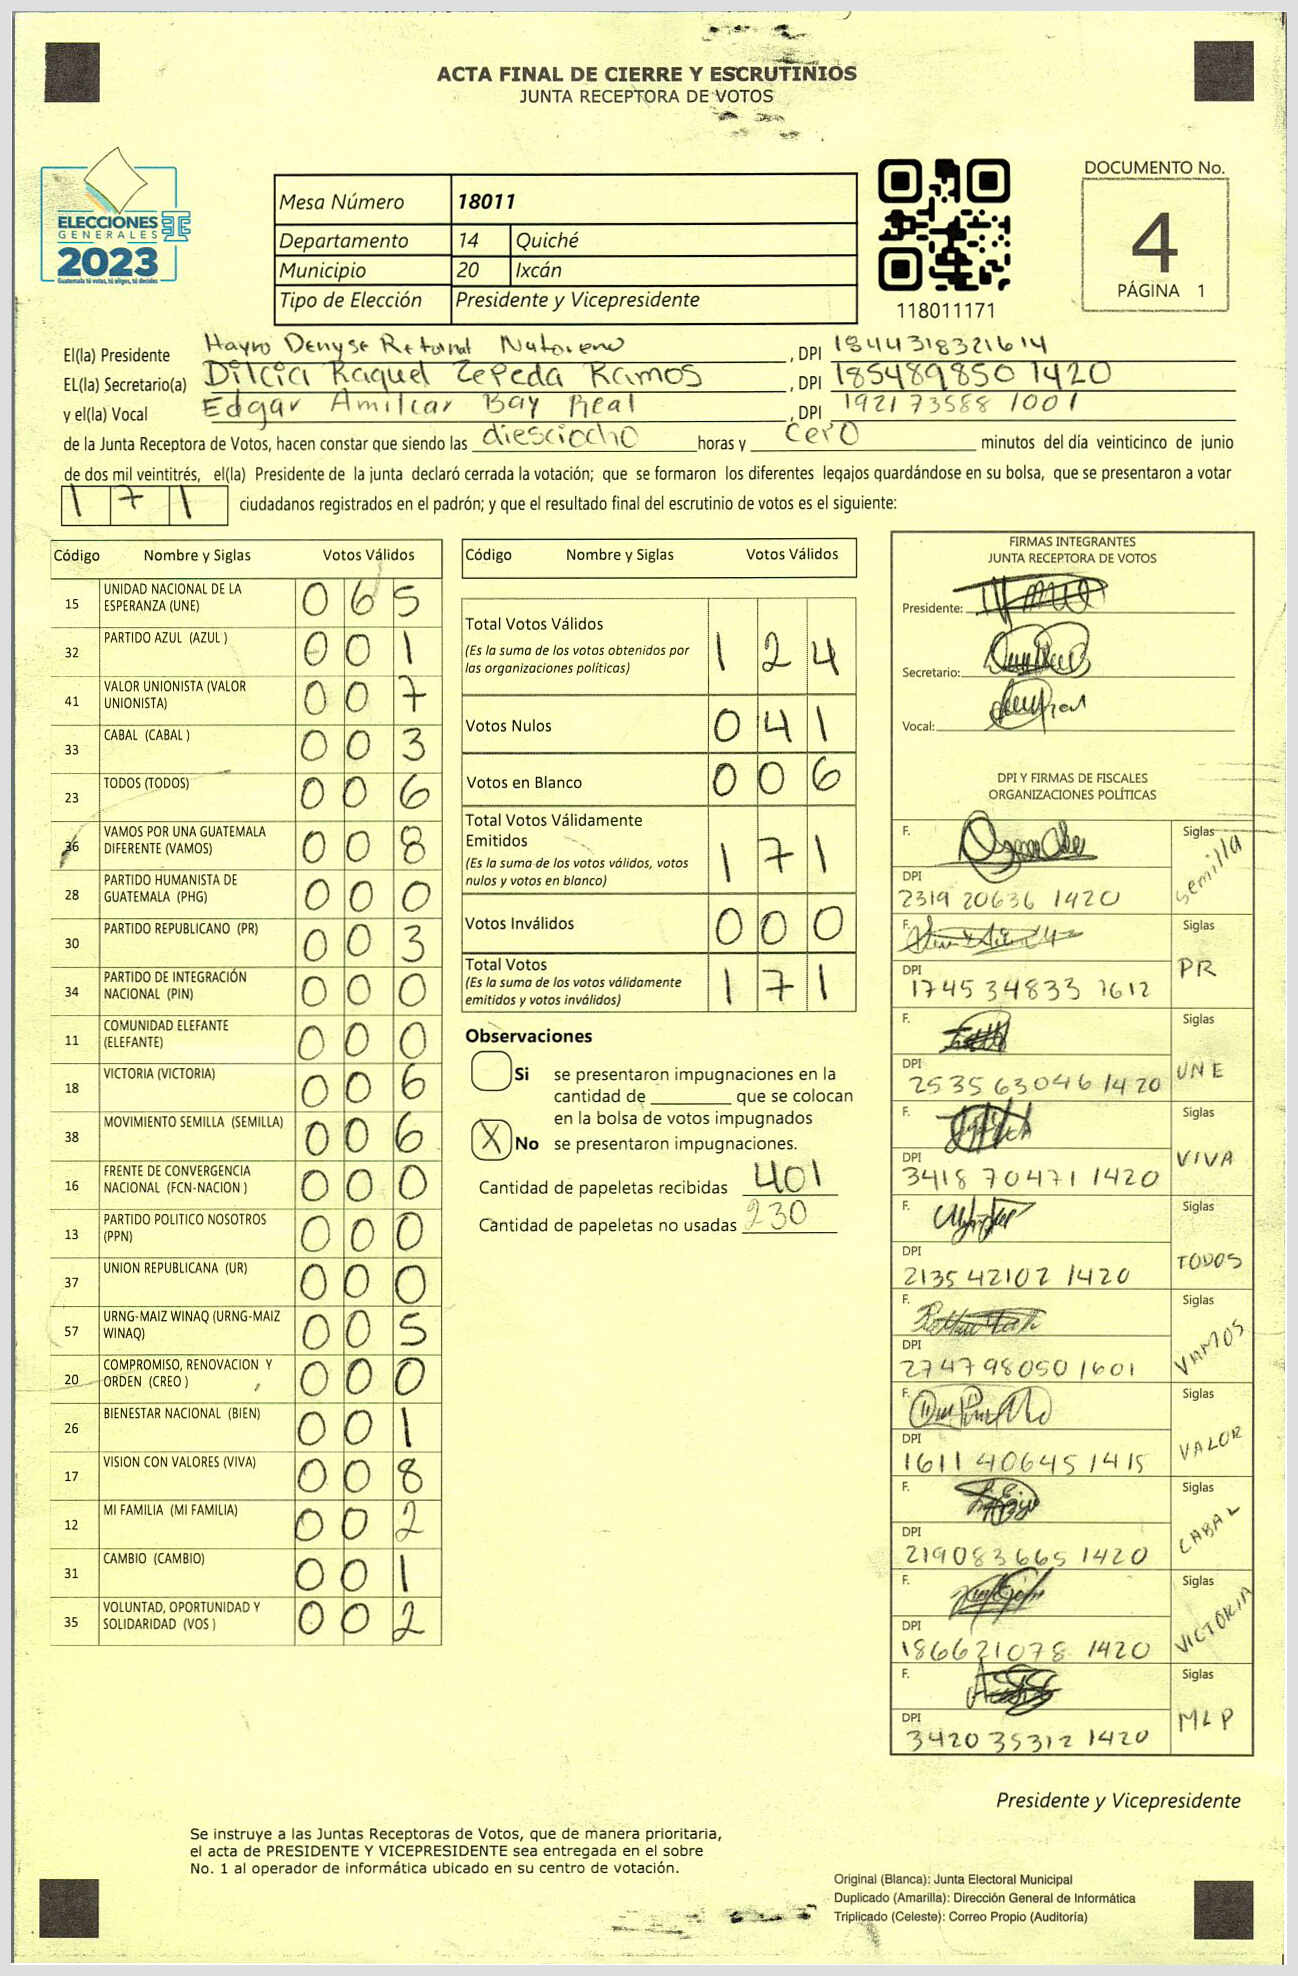 ACTA FINAL DE CIERRE Y ESCRUTINIOS
JUNTA RECEPTORA DE VOTOS
ELECCIONES
GENERALES
2023
Guatemala tú votas, tú eliges, tú decides
Mesa Número 18011
Departamento 14 Quiché
Municipio 20 Ixcán
Tipo de Elección Presidente y Vicepresidente
118011171
DOCUMENTO No.
4
PÁGINA 1
El(la) Presidente Hayro Denyse Retonal , DPI 1844318321614
EL(la) Secretario(a) Dilcia Raquel Zepeda Ramos , DPI 185489850 1420
y el(la) Vocal Edgar Amilcar Bay Real , DPI 192173588 1001
de la Junta Receptora de Votos, hacen constar que siendo las diesciocho horas y cero minutos del día veinticinco de junio
de dos mil veintitrés, el(la) Presidente de la junta declaró cerrada la votación; que se formaron los diferentes legajos quardándose en su bolsa, que se presentaron a votar
171 ciudadanos registrados en el padrón; y que el resultado final del escrutinio de votos es el siguiente:
Código Nombre y Siglas Votos Válidos
15 UNIDAD NACIONAL DE LA ESPERANZA (UNE) 065
32 PARTIDO AZUL (AZUL ) 001
41 VALOR UNIONISTA (VALOR UNIONISTA) 007
33 CABAL (CABAL ) 003
23 TODOS (TODOS) 006
36 VAMOS POR UNA GUATEMALA DIFERENTE (VAMOS) 008
28 PARTIDO HUMANISTA DE GUATEMALA (PHG) 000
30 PARTIDO REPUBLICANO (PR) 003
34 PARTIDO DE INTEGRACIÓN NACIONAL (PIN) 000
11 COMUNIDAD ELEFANTE (ELEFANTE) 000
18 VICTORIA (VICTORIA) 006
38 MOVIMIENTO SEMILLA (SEMILLA) 006
16 FRENTE DE CONVERGENCIA NACIONAL (FCN-NACION ) 000
13 PARTIDO POLITICO NOSOTROS (PPN) 000
37 UNION REPUBLICANA (UR) 000
57 URNG-MAIZ WINAQ (URNG-MAIZ WINAQ) 005
20 COMPROMISO, RENOVACION Y ORDEN (CREO ) 000
26 BIENESTAR NACIONAL (BIEN) 001
17 VISION CON VALORES (VIVA) 008
12 MI FAMILIA (MI FAMILIA) 002
31 CAMBIO (CAMBIO) 001
35 VOLUNTAD, OPORTUNIDAD Y SOLIDARIDAD (VOS ) 002
Código Nombre y Siglas Votos Válidos
Total Votos Válidos 124
(Es la suma de los votos obtenidos por
las organizaciones políticas)
Votos Nulos 041
Votos en Blanco 006
Total Votos Válidamente
Emitidos 171
(Es la suma de los votos válidos, votos
nulos y votos en blanco)
Votos Inválidos 000
Total Votos 171
(Es la suma de los votos válidamente
emitidos y votos inválidos)
Observaciones
Si se presentaron impugnaciones en la
cantidad de ________ que se colocan
en la bolsa de votos impugnados
X No se presentaron impugnaciones.
Cantidad de papeletas recibidas 401
Cantidad de papeletas no usadas 230
FIRMAS INTEGRANTES
JUNTA RECEPTORA DE VOTOS
Presidente:
Secretario:
Vocal:
DPI Y FIRMAS DE FISCALES
ORGANIZACIONES POLÍTICAS
F. Siglas
DPI semilla
2319 20636 1420
F. Siglas
DPI PR
1745 34833 1612
F. Siglas
DPI UNE
2535 63046 1420
F. Siglas
DPI VIVA
3418 70471 1420
F. Siglas
DPI TODOS
2135 42102 1420
F. Siglas
DPI VAMOS
2747 98050 1601
F. Siglas
DPI VALOR
1611 40645 1415
F. Siglas
DPI CABAL
219083665 1420
F. Siglas
DPI VICTORIA
186621078 1420
F. Siglas
DPI MLP
3420 35312 1420
Presidente y Vicepresidente
Se instruye a las Juntas Receptoras de Votos, que de manera prioritaria,
el acta de PRESIDENTE Y VICEPRESIDENTE sea entregada en el sobre
No. 1 al operador de informática ubicado en su centro de votación.
Original (Blanca): Junta Electoral Municipal
Duplicado (Amarilla): Dirección General de Informática
Triplicado (Celeste): Correo Propio (Auditoría)